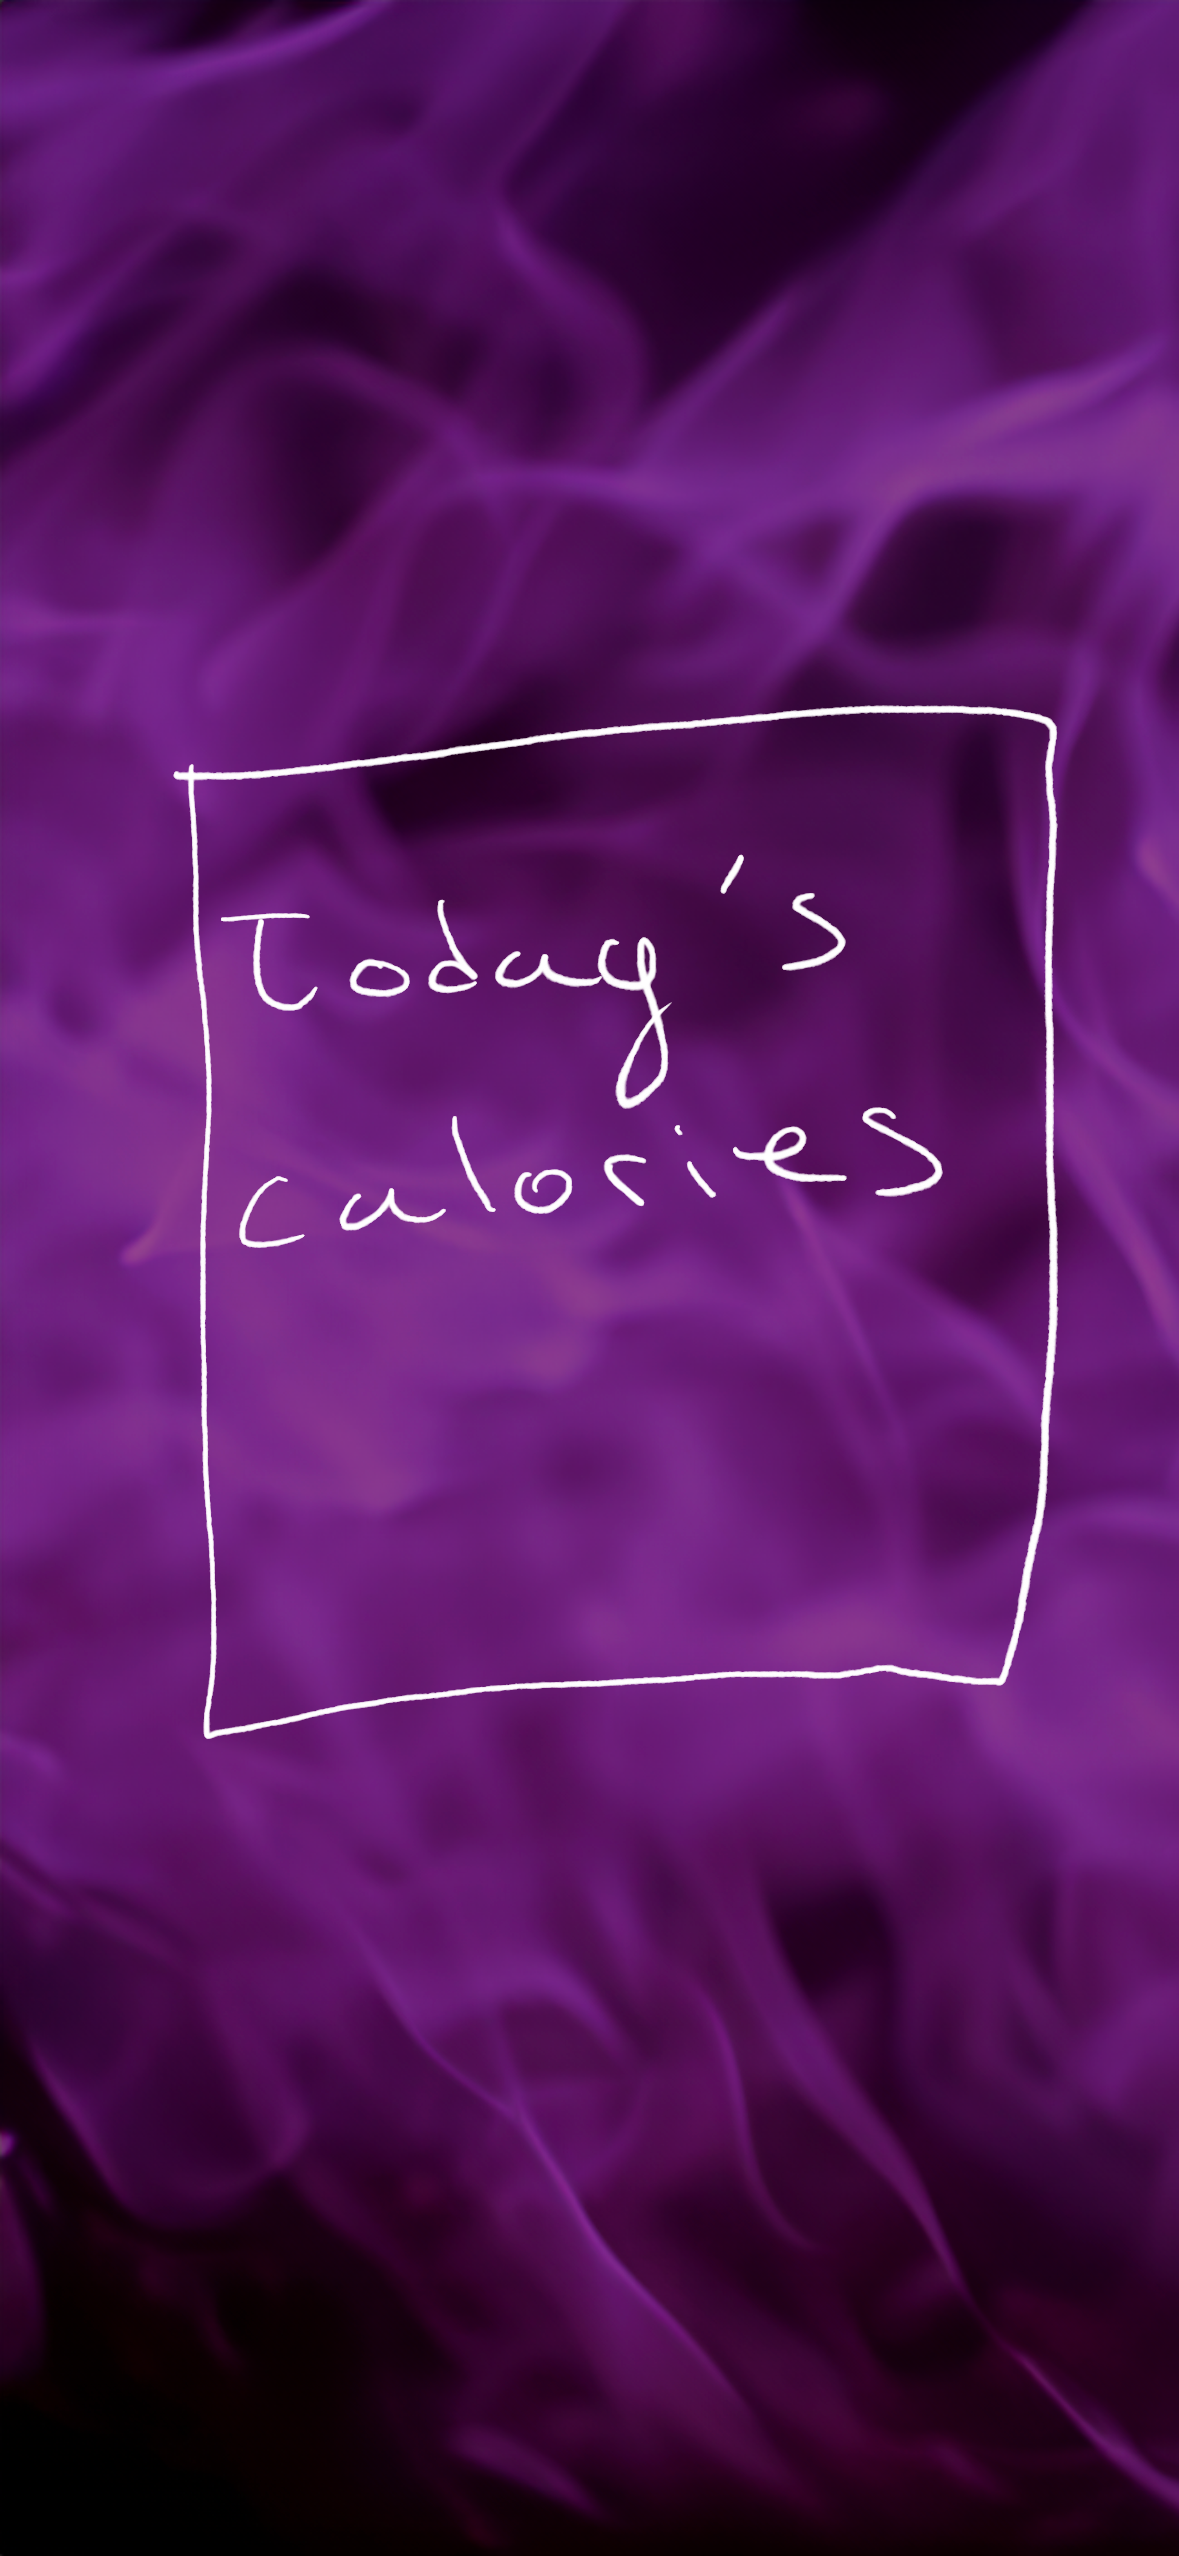 Today's
calories